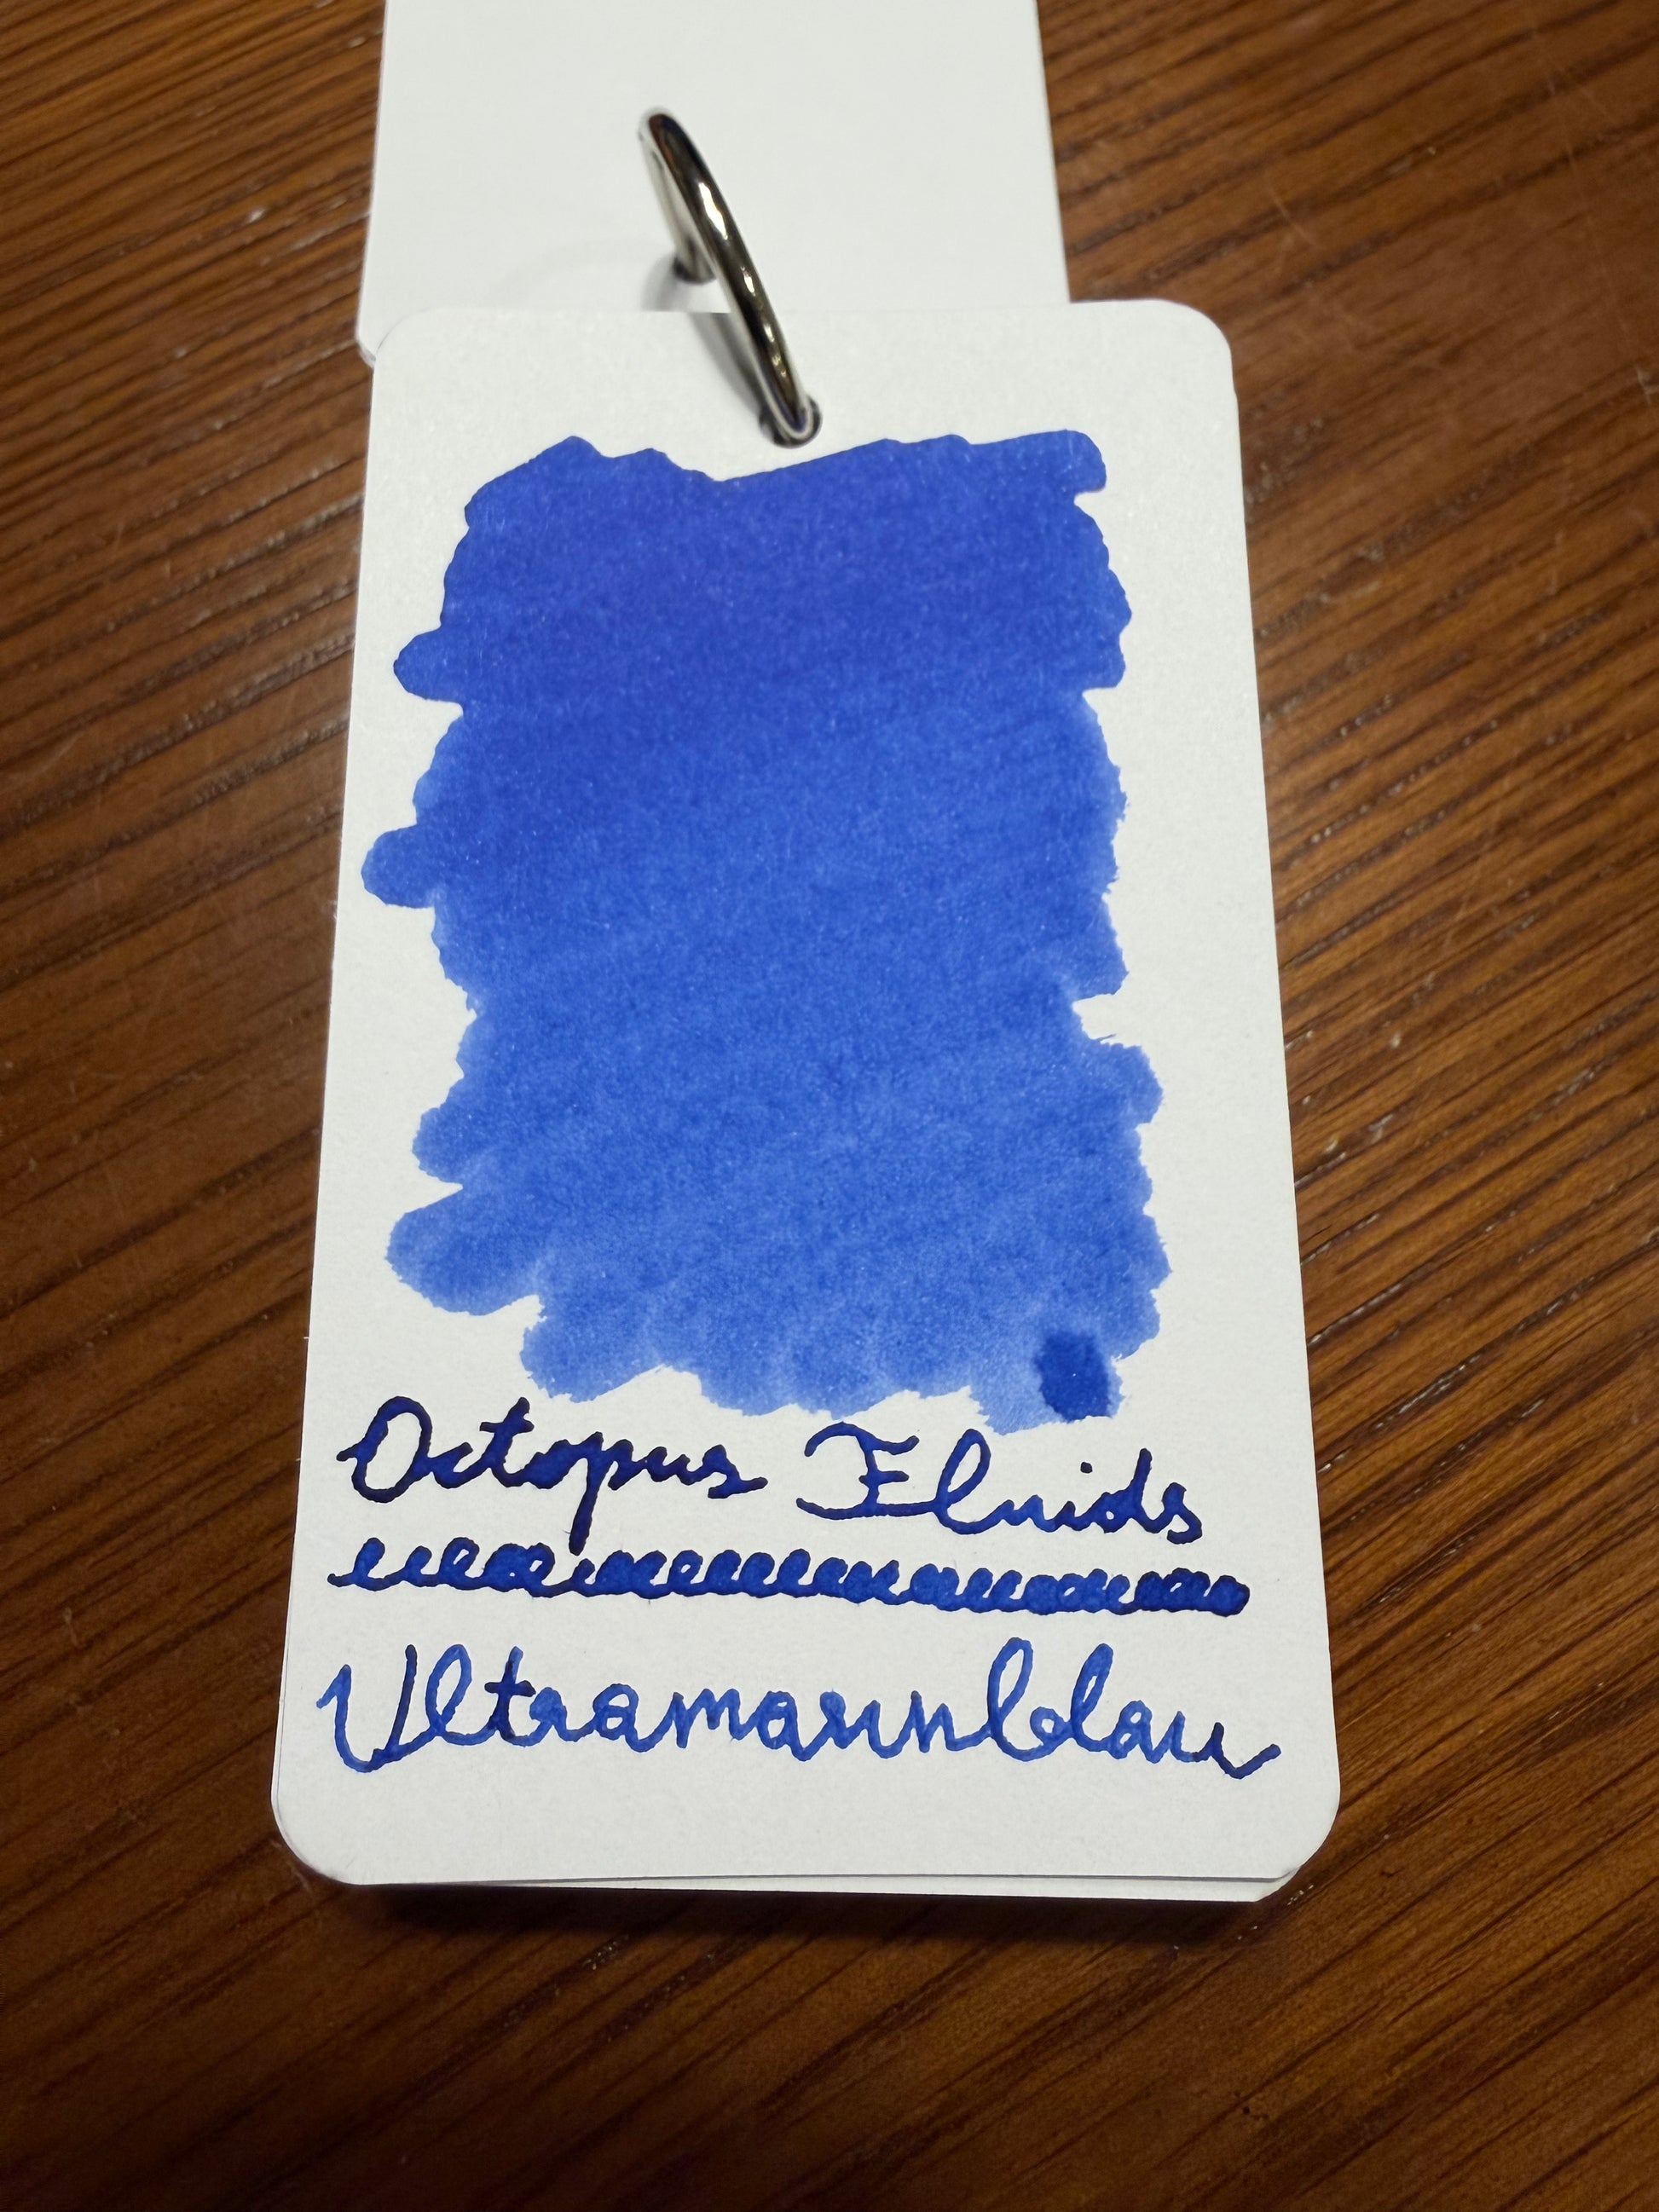 Octopus Fluids
Ultramarinblau